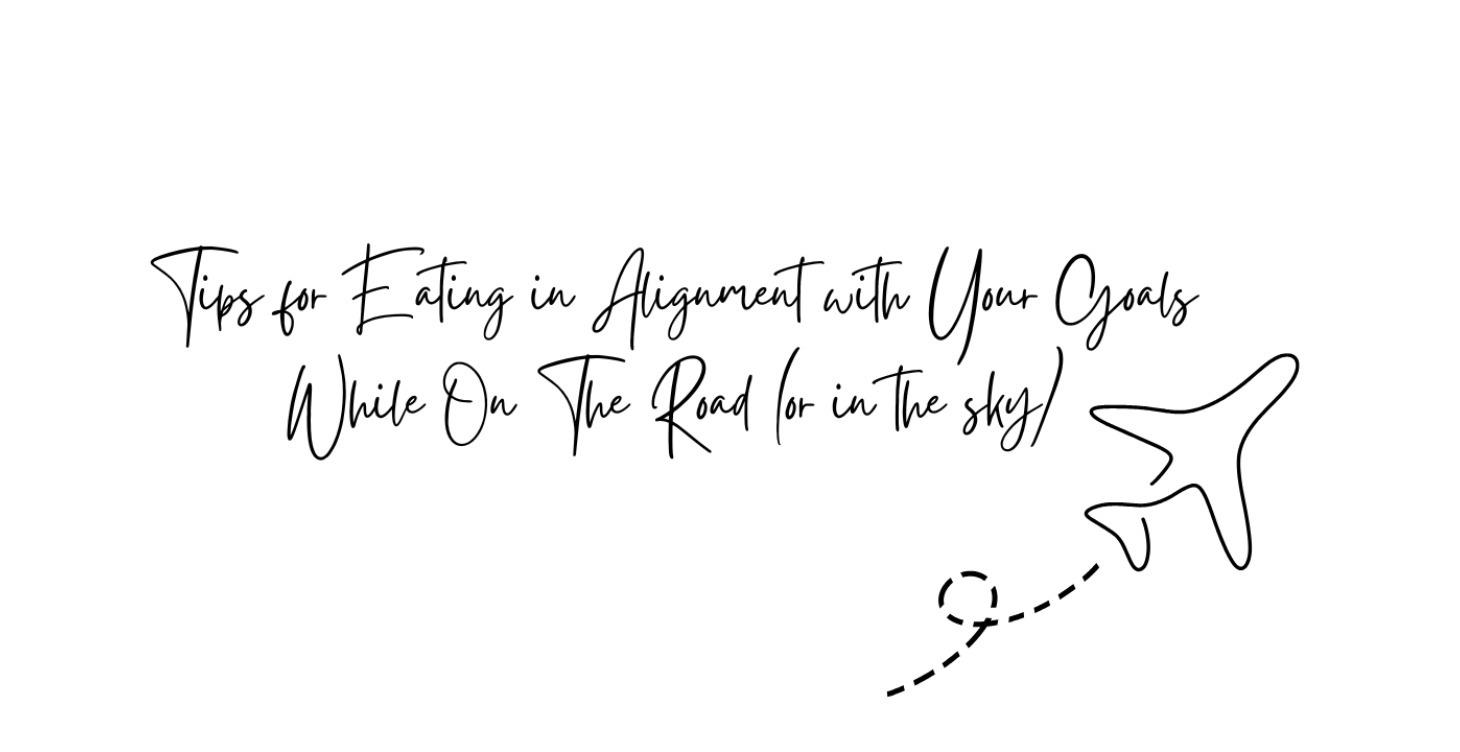 Tips for Eating in Alignment with Your Goals
While On The Road (or in the sky)